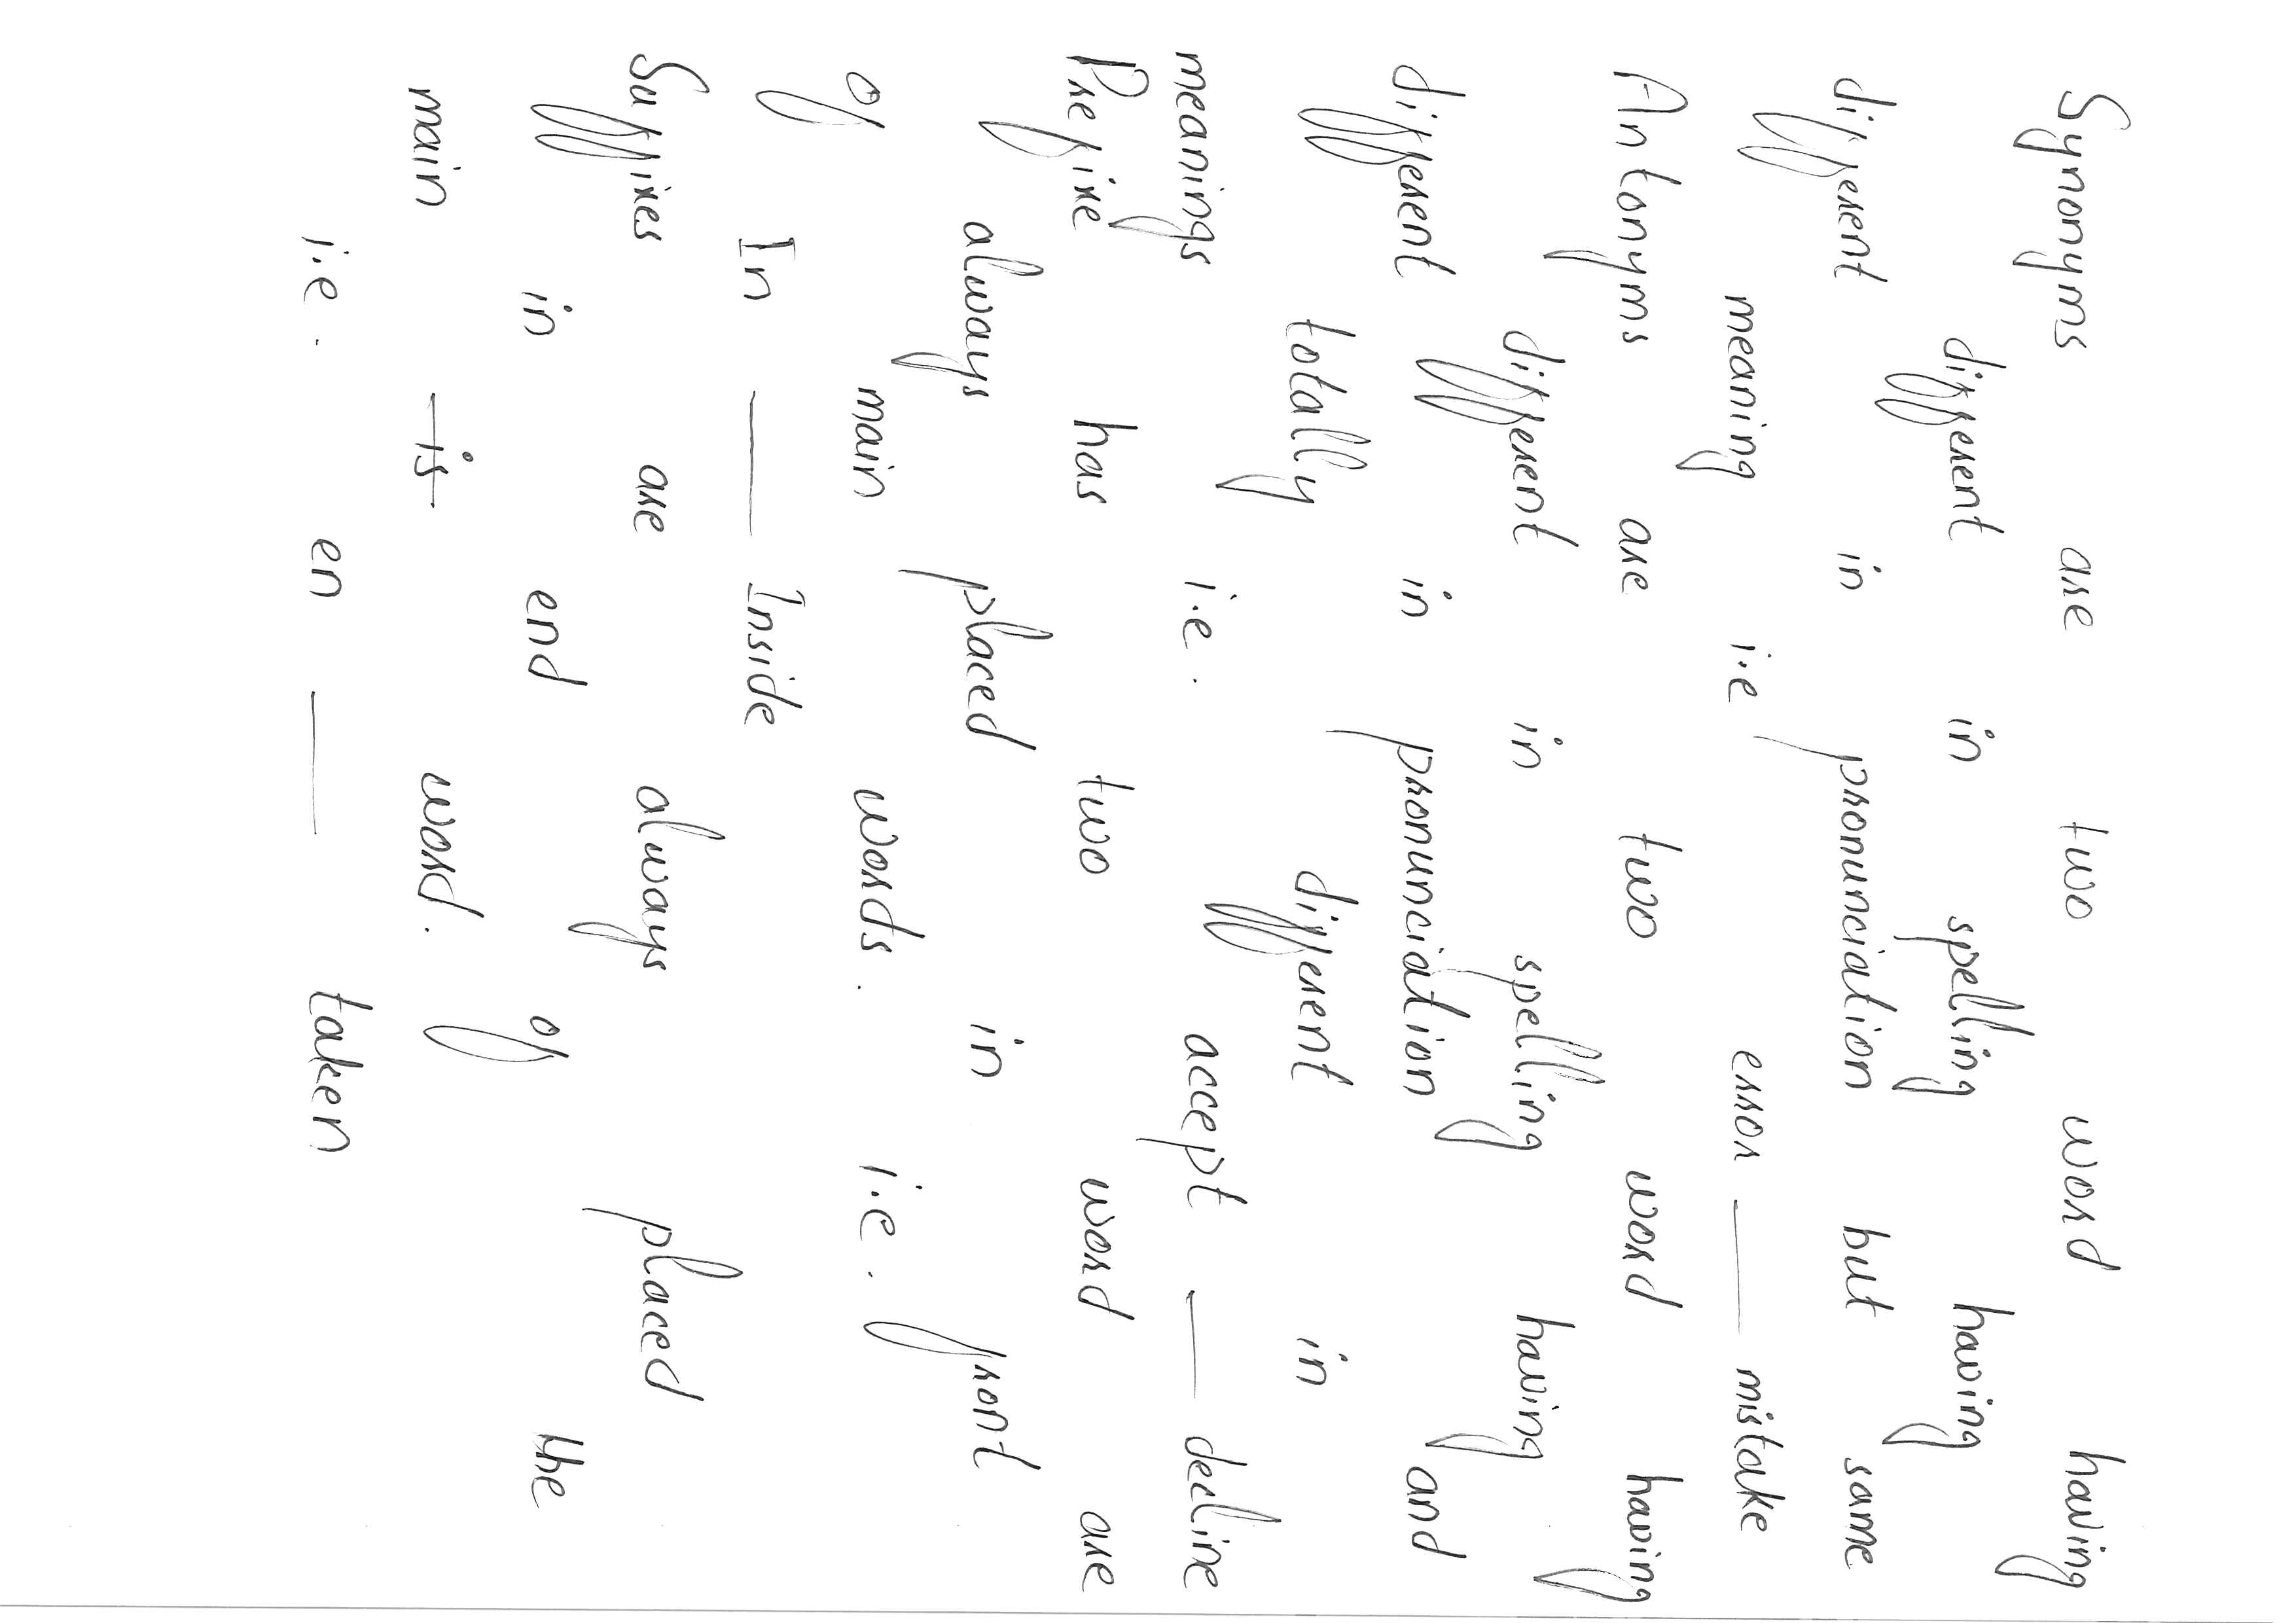 Synonyms are two word having
different in spelling having
different in pronunciation but same
meaning i.e error — mistake
Antonyms are two word having
different in spelling having
different in pronunciation and
totally different in
meanings i.e. accept — decline
Prefixe has two word are
always placed in front
of main words. i.e.
In — Inside
Suffixes are always placed
in end of the
main is word.
i.e. en — taken